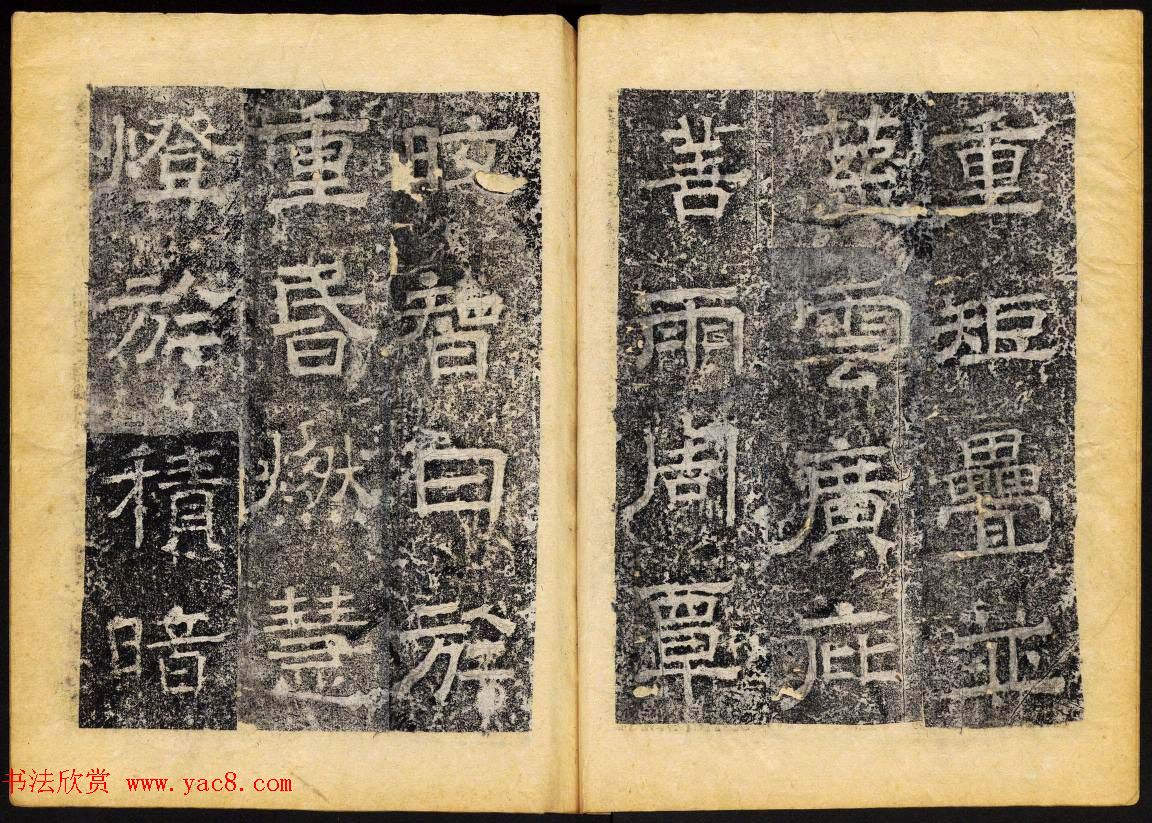 重矩疊並
慈雲廣庇
善雨周覃
智白於
重昏燃慧
燈於積暗
书法欣赏 www.yac8.com